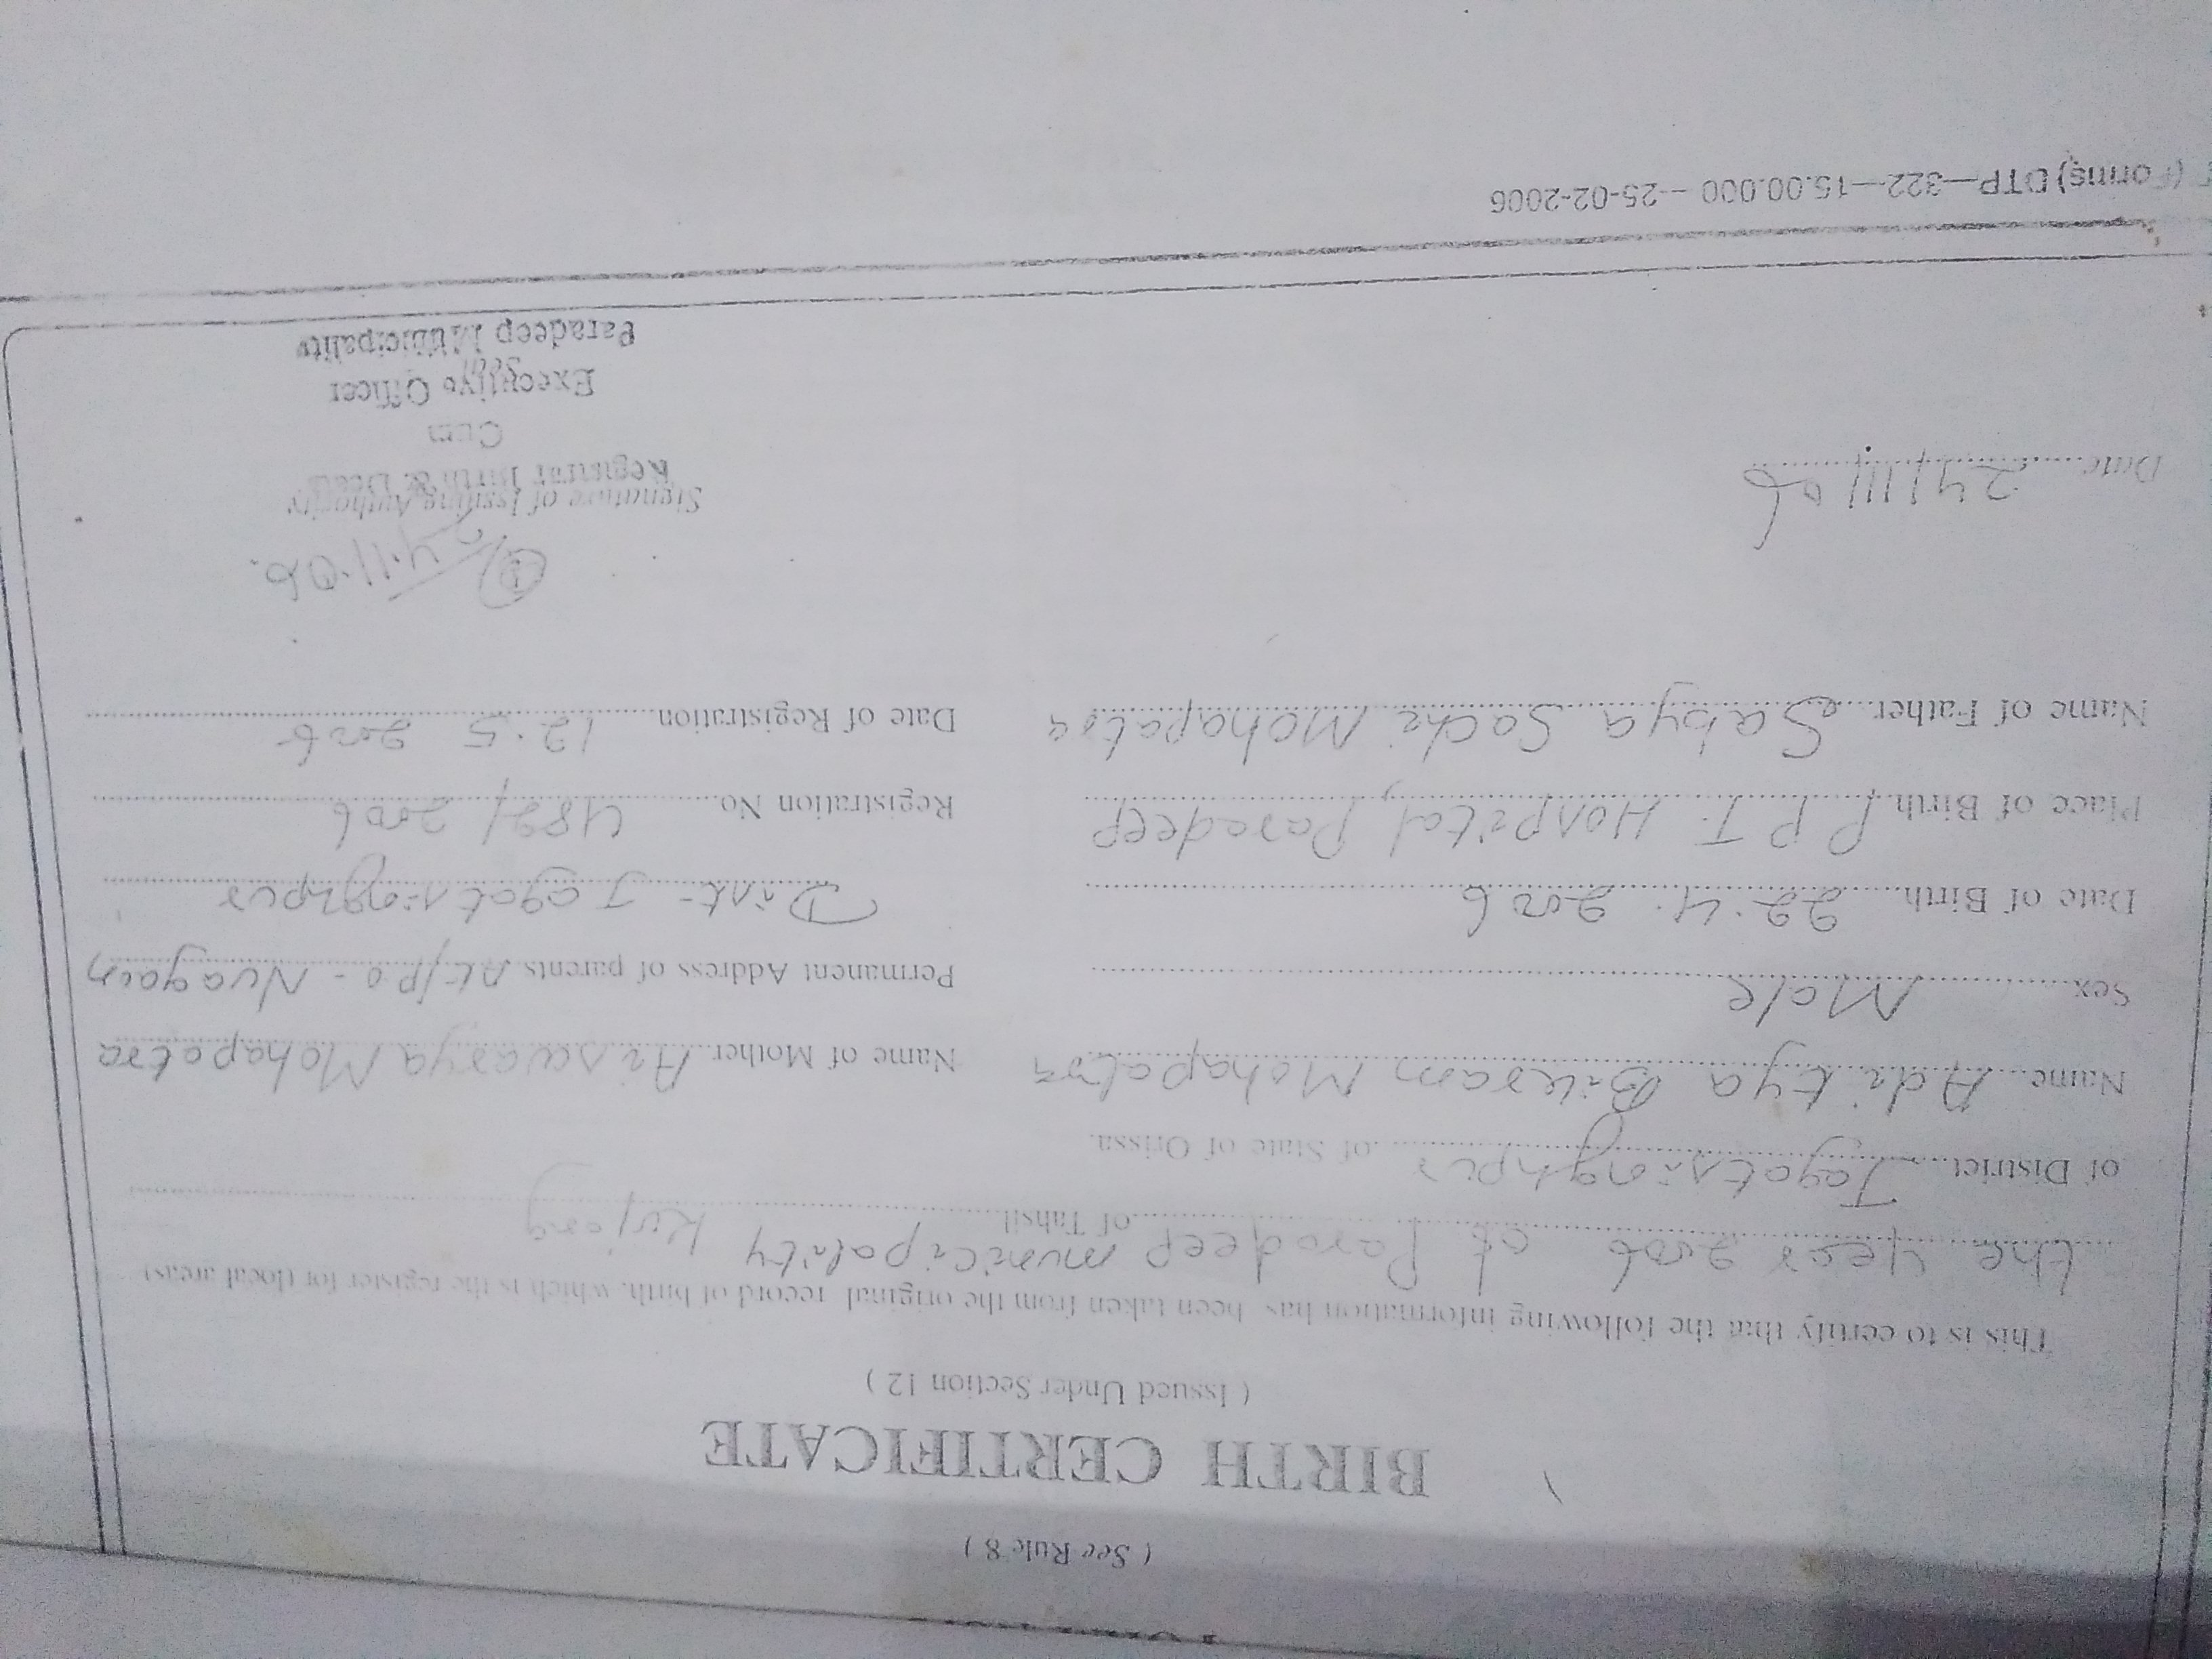 ( See Rule 8 )
BIRTH CERTIFICATE
( Issued Under Section 12 )
This is to certify that the following information has been taken from the original record of birth, which is the register for (local areas)
the year 2006 at Paradeep municipality of Tahsil Kujang
of District Jagatsinghpur of State of Orissa.
Name Aditya Bikram Mohapatra Name of Mother Aiswarya Mohapatra
Sex Male Permanent Address of parents At/po - Nuagain
Date of Birth 22.4.2006 Dist - Jagatsinghpur
Place of Birth P.P.T. Hospital, Paradeep Registration No. 489/2006
Name of Father Sabya Sachi Mohapatra Date of Registration 12.5 2006
24.11.06.
Date 24/11/06 Signature of Issuing Authority
Registrar Birth &
Cum
Executive Officer
Seal
Paradeep Municipality
(Forms) DTP—322—15.00.000 – 25-02-2006